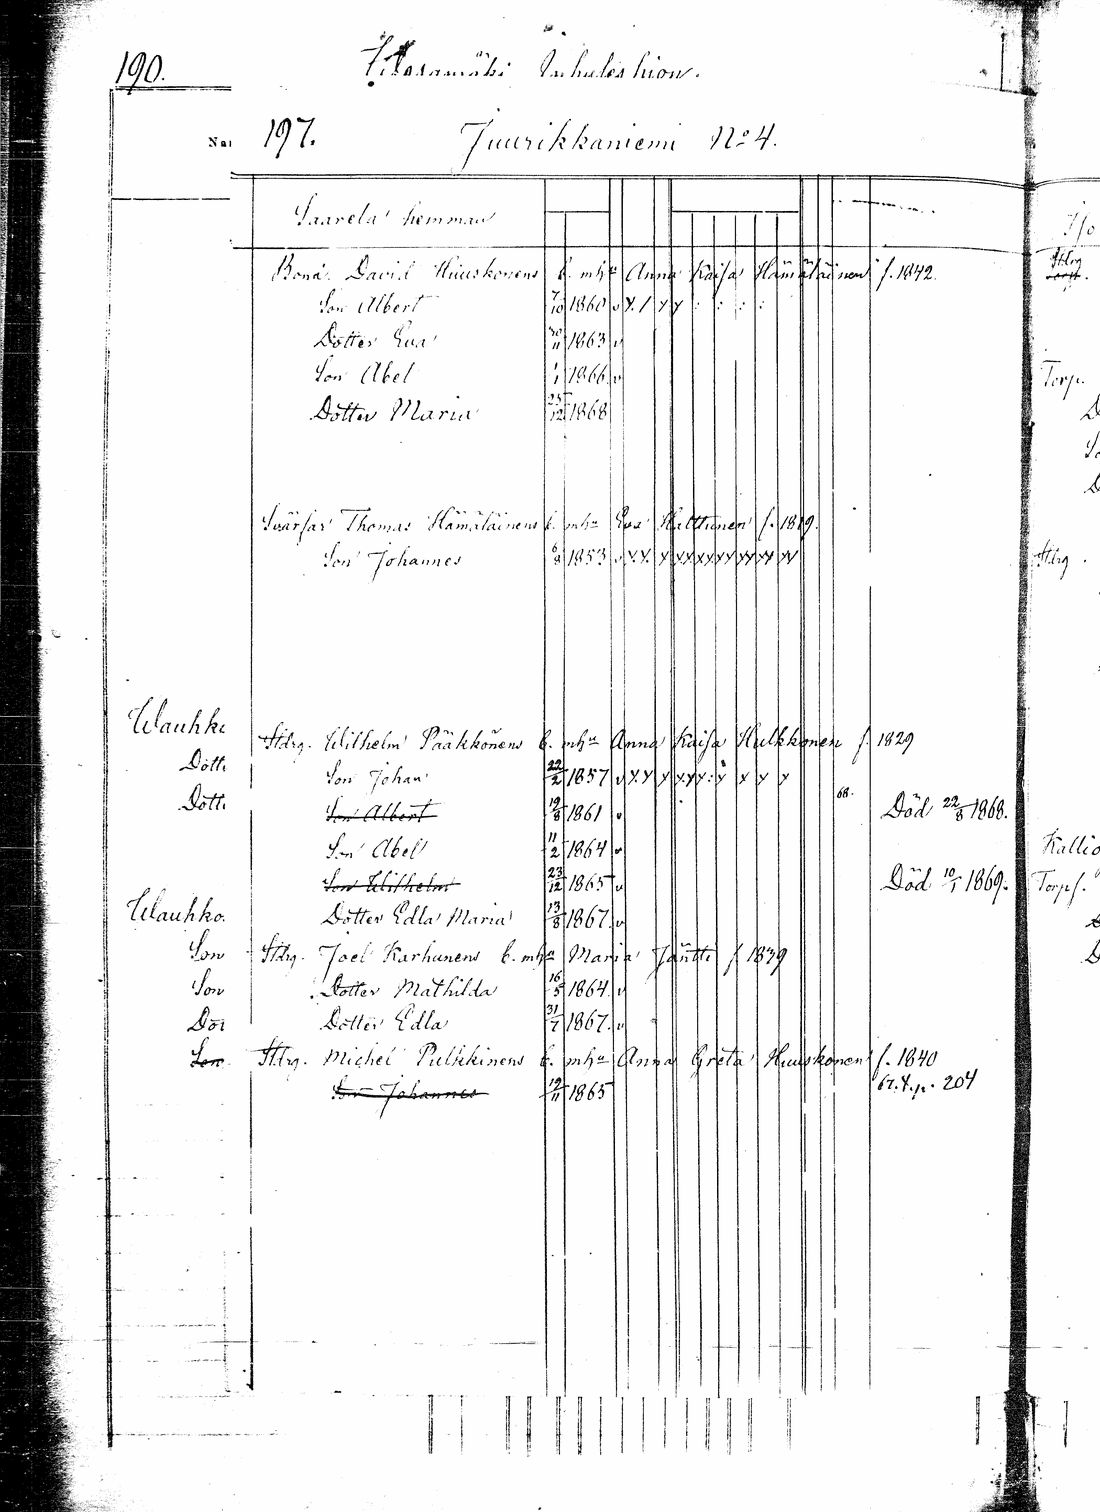 190.
197. Juurikkaniemi No 4.
Saarela hemman
Bond. David Huuskonens b. mhu Anna Kaisa Hämäläinen f. 1842.
Son Albert 7/10 1860
Dotter Eva 30/11 1863
Son Abel 1/1 1866
Dotter Maria 25/12 1868
Svärfar Thomas Hämäläinens b. mhu Eva Halttunen f. 1819.
Son Johannes 6/8 1853
Stdrg. Wilhelm Pääkkönens b. mhu Anna Kaisa Hulkkonen f. 1829
Son Johan 22/2 1857
Son Albert 19/8 1861 68. Död 22/8 1868.
Son Abel 11/2 1864
Son Wilhelm 23/12 1865 Död 10/1 1869.
Dotter Edla Maria 13/8 1867
Stdrg. Joel Karhunens b. mhu Maria Jäntti f. 1839
Dotter Mathilda 16/5 1864
Dotter Edla 31/7 1867
Stdrg. Michel Pulkkinens b. mhu Anna Greta Huuskonen f. 1840
Son Johannes 19/11 1865 67. p. 204
Wauhko
Dott
Dott
Wauhko.
Son
Son
Dot
Son
Stdrg
Torp.
Stdrg.
Kallio
Torpf.